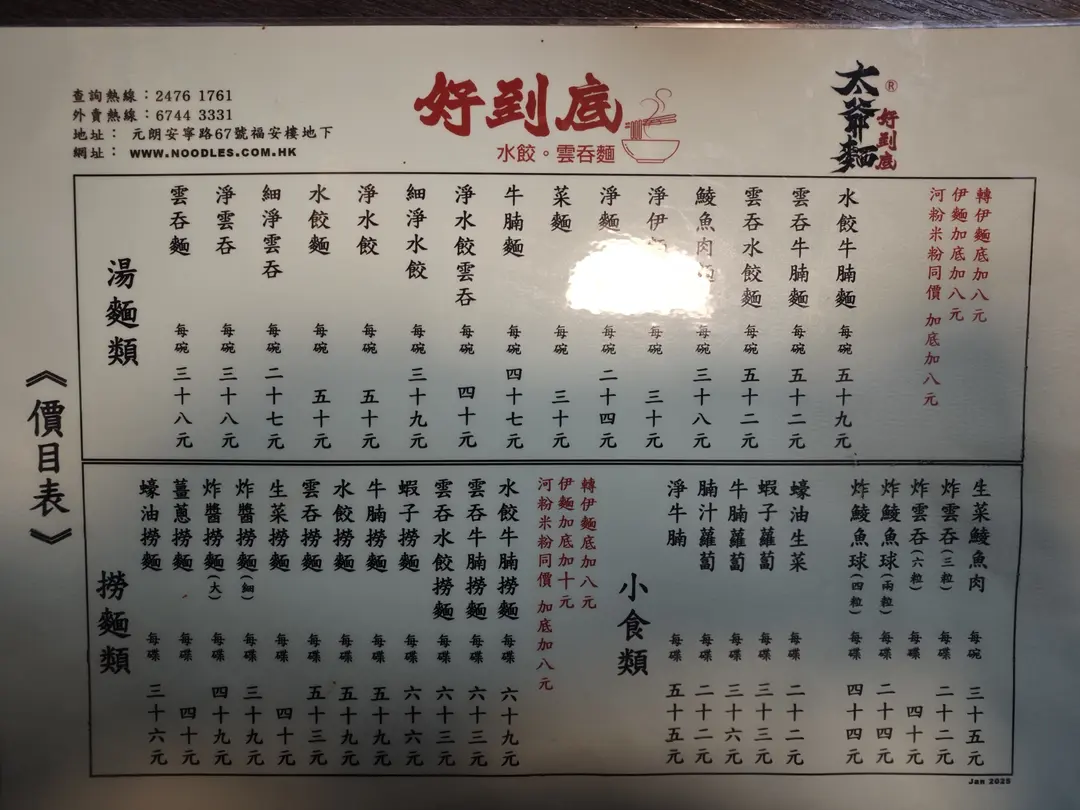 查詢熱線：2476 1761
外賣熱線：6744 3331
地址： 元朗安寧路67號福安樓地下
網址： WWW.NOODLES.COM.HK
好到底
水餃。雲吞麵
太爺麵
®
好到底
《價目表》
湯麵類
雲吞麵 每碗 三十八元
淨雲吞 每碗 三十八元
細淨雲吞 每碗 二十七元
水餃麵 每碗 五十元
淨水餃 每碗 五十元
細淨水餃 每碗 三十九元
淨水餃雲吞 每碗 四十元
牛腩麵 每碗 四十七元
菜麵 每碗 三十元
淨麵 每碗 二十四元
淨伊 每碗 三十元
鯪魚肉 每碗 三十八元
雲吞水餃麵 每碗 五十二元
雲吞牛腩麵 每碗 五十二元
水餃牛腩麵 每碗 五十九元
轉伊麵底加八元
伊麵加底加八元
河粉米粉同價 加底加八元
撈麵類
蠔油撈麵 每碟 三十六元
薑蔥撈麵 每碟 四十元
炸醬撈麵(大) 每碟 四十九元
炸醬撈麵(細) 每碟 三十九元
生菜撈麵 每碟 四十元
雲吞撈麵 每碟 五十三元
水餃撈麵 每碟 五十九元
牛腩撈麵 每碟 五十九元
蝦子撈麵 每碟 六十六元
雲吞水餃撈麵 每碟 六十三元
雲吞牛腩撈麵 每碟 六十三元
水餃牛腩撈麵 每碟 六十九元
轉伊麵底加八元
伊麵加底加十元
河粉米粉同價 加底加八元
小食類
淨牛腩 每碟 五十五元
腩汁蘿蔔 每碟 二十二元
牛腩蘿蔔 每碟 三十六元
蝦子蘿蔔 每碟 三十三元
蠔油生菜 每碟 二十二元
炸鯪魚球(四粒) 每碟 四十四元
炸鯪魚球(兩粒) 每碟 二十四元
炸雲吞(六粒) 每碟 四十元
炸雲吞(三粒) 每碟 二十二元
生菜鯪魚肉 每碗 三十五元
Jan 2025